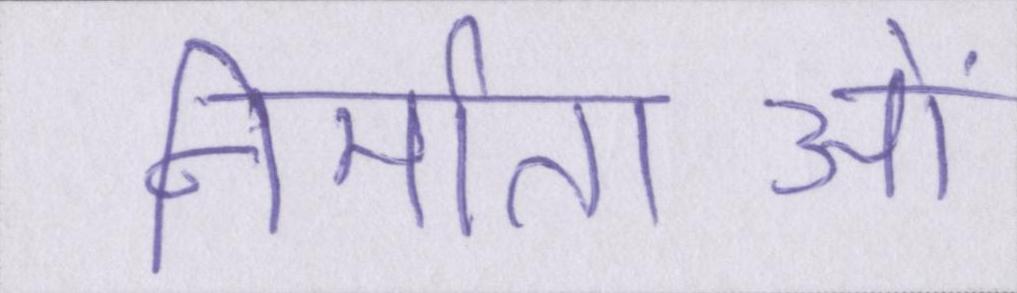 निर्माताओं